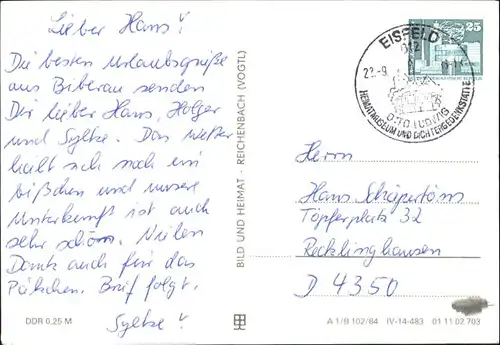 Lieber Hans!
Die besten Urlaubsgrüße
aus Biberau senden
Dir lieber Hans, Holger
und Syltze. Das Wetter
hält sich noch ein
bißchen und unsere
Unterkunft ist auch
sehr schön. Vielen
Dank auch für das
Päckchen. Brief folgt.
Syltze!
DDR 0,25 M
BILD UND HEIMAT - REICHENBACH (VOGTL)
EISFELD
22.-9.
OTTO LUDWIG
HEIMATMUSEUM UND DICHTERGEDENKSTÄTTE
25
Herrn
Hans Schäpertöns
Töpferplatz 32
Recklinghausen
D 4350
A 1/B 102/84 IV-14-483 01 11 02 703